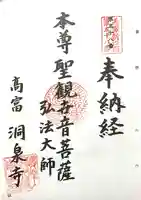 奉納経
本尊聖観世音菩薩
弘法大師
高富 洞泉寺